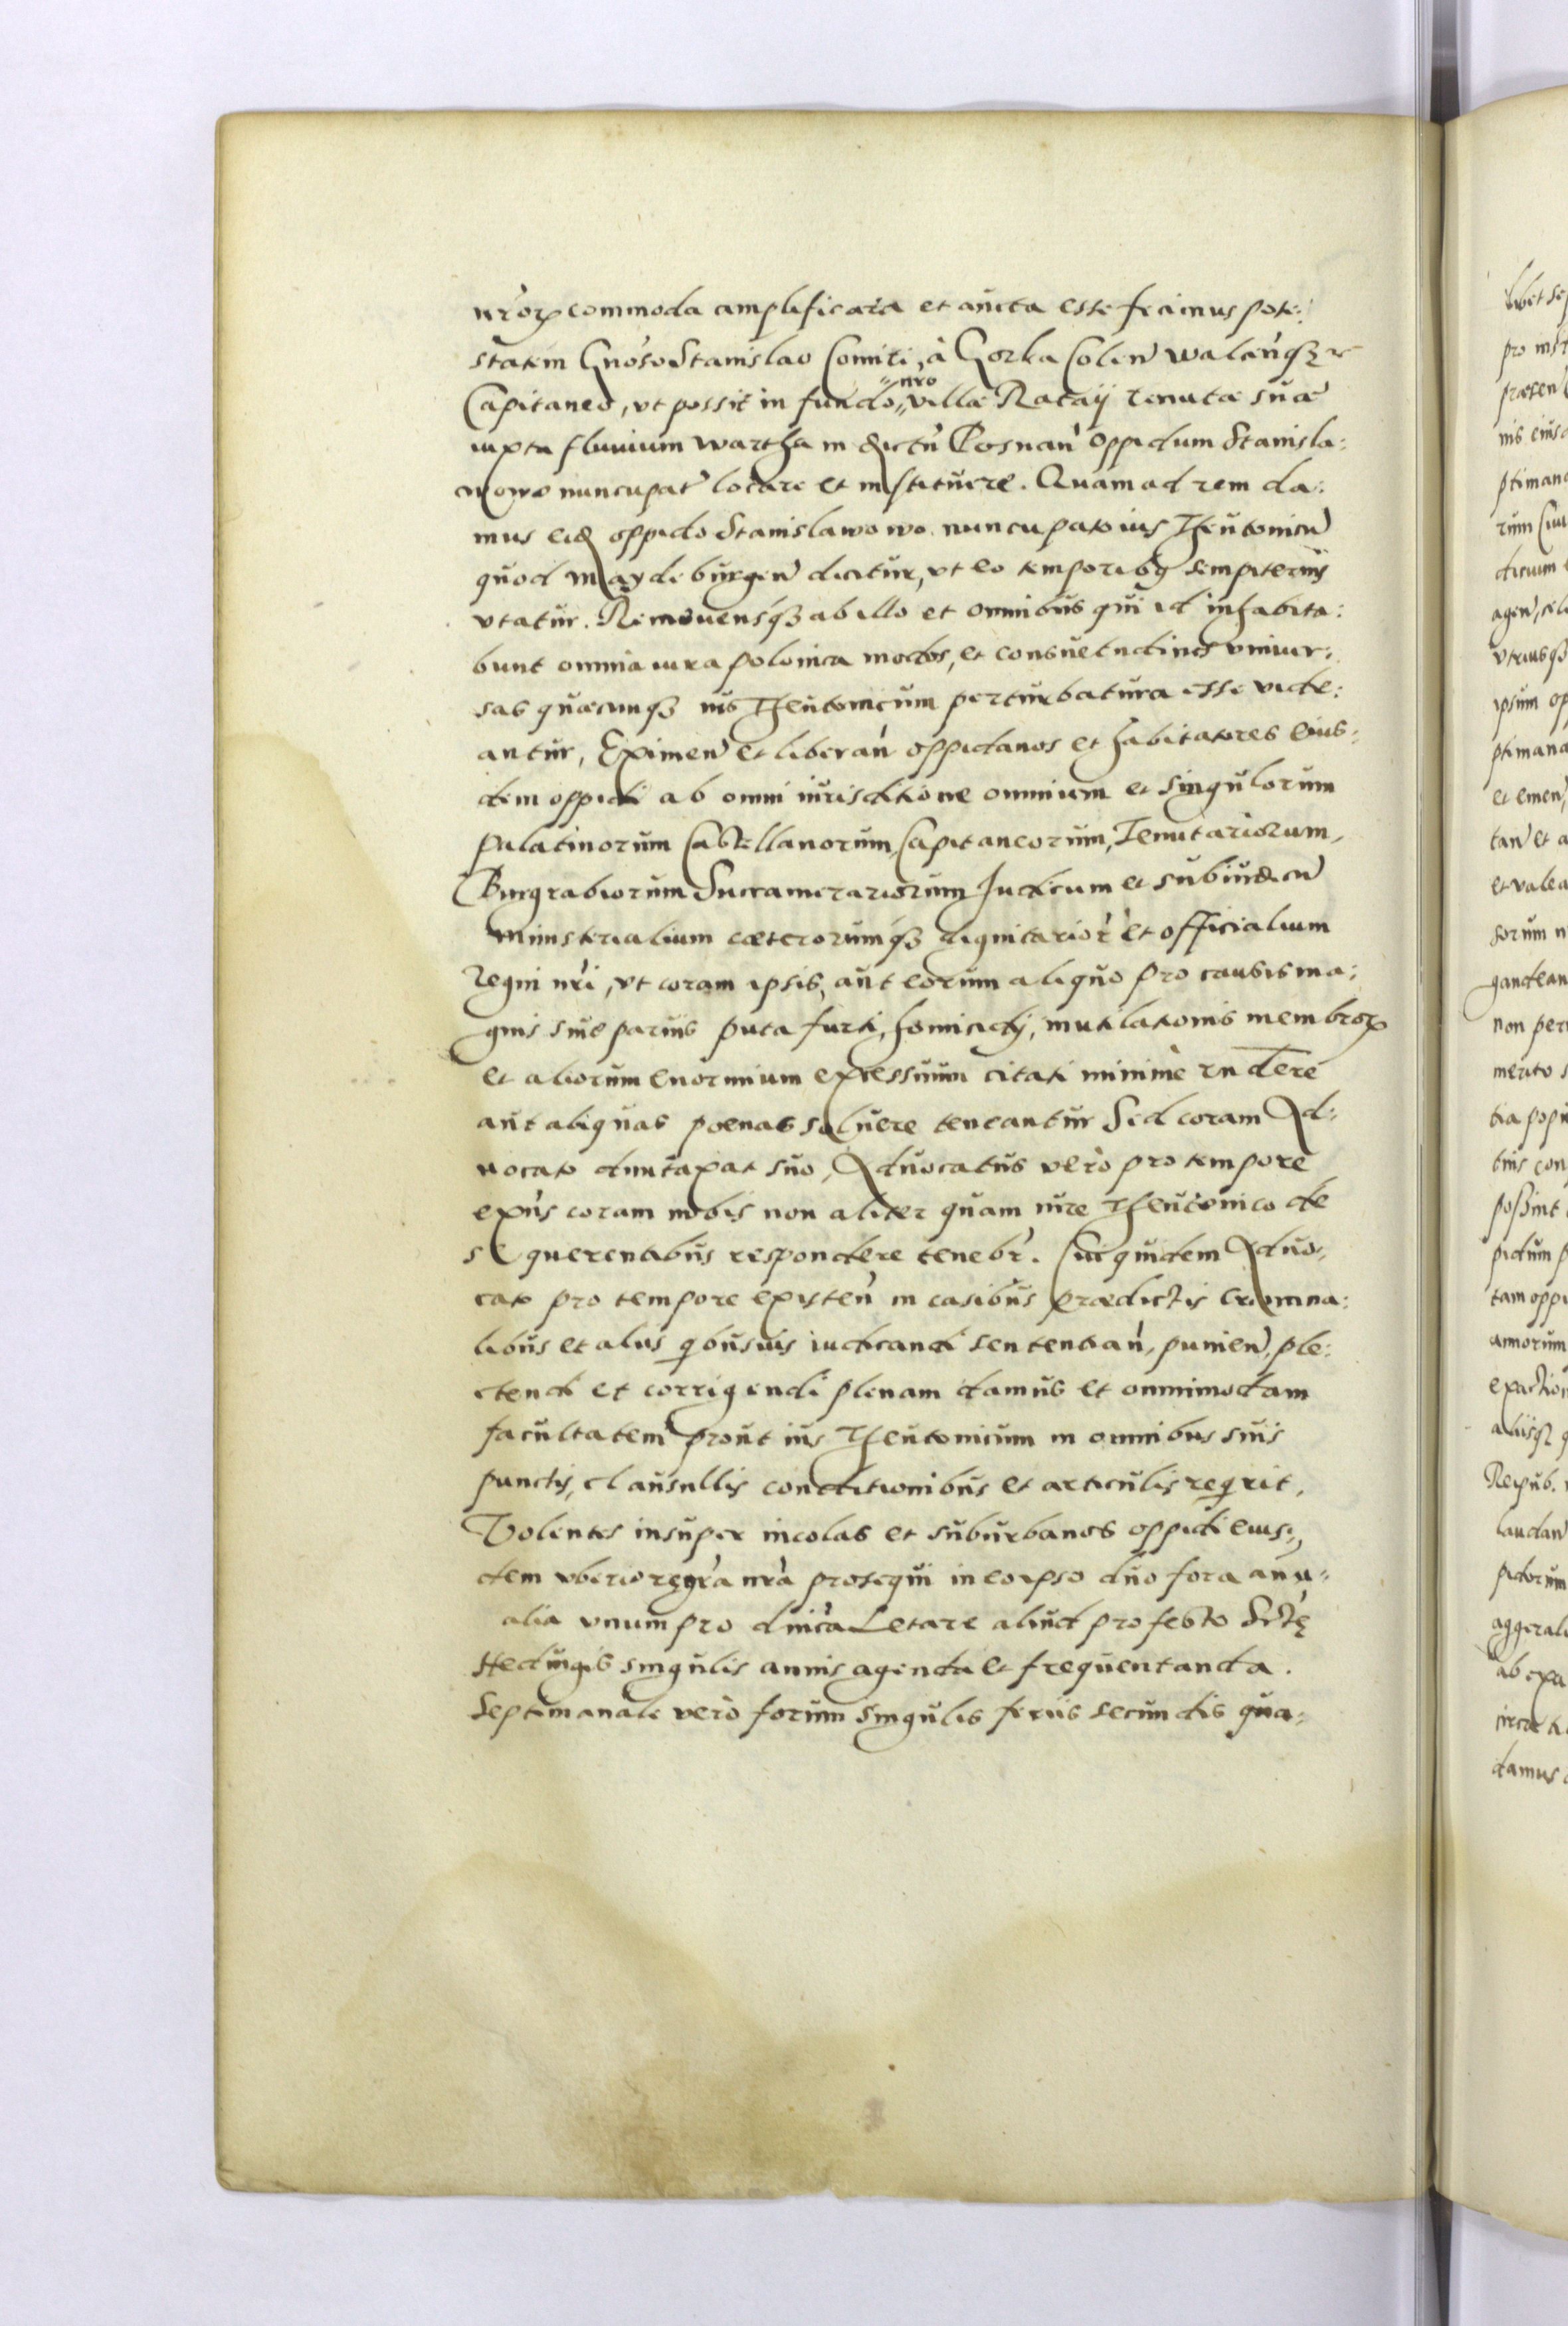 nr̃orꝝ commoda amplificata et aucta esse fecimus pote:
statem Gnoso Stanislao Comiti, à Gorka Colen̄ walen̄q₃ r
Capitaneo, vt possit in fundo nro villæ Rataÿ tenutæ suæ
iuxta fluuium wartha in distr̄ Posnan̄ oppidum Stanisla:
wowo nuncupat̄ locare et instituere. Quam ad rem da:
mus eid oppido Stanislawowo nuncupato ius Theutonicū
quod Maydeburgen̄ dicitur, vt eo temporibꝫ sempiternis
vtatur. Remouensq₃ ab illo et omnibus qui id inhabita:
bunt omnia iura polonica modos, et consuetudines vniuer:
sas quæcunq₃ ius Theutonicum perturbatura esse vide:
antur, Eximen̄ et liberan̄ oppidanos et habitatores eius:
dem oppidi ab omni iurisditione omnium et singulorum
Palatinorum Castellanorum, Capitaneorum, Tenutariorum,
Burgrabiorum Succamerariorum Judicum et subiudicū
Ministerialium cæterorumq₃ dignitarior̄ et officialium
Regni nr̄i, vt coram ipsis, aut eorum aliquo pro causis ma:
gnis siue paruis puta furti, homicidij, mutilationis membrorꝝ
et aliorum enormium excessuum citati minimè rn̄dere
aut aliquas poenas soluere teneantur Sed coram Ad:
uocato duntaxat suo, Aduocatus verò pro tempore
exn̄s coram nobis non aliter quam iure Theutonico de
se querentibus respondere tenebr̄. Cui quidem Aduo:
cato pro tempore existen̄ in casibus prædictis crimina:
libus et alijs qbusuis iudicandi sententian̄, punien̄, ple:
ctendi et corrigendi plenam damus et omnimodam
facultatem prout ius Theutonicum in omnibus suis
punctis, clausullis conditionibus et articulis reqrit.
Volentes insuper incolas et suburbanos oppidi eius:
dem vberiore gr̄a nr̄a prosequi in eo ipso duo fora annu:
alia vnum pro dnīca Letare aliud pro festo Sctę
Hedungis singulis annis agenda et frequentanda.
Septimanale verò forum singulis ferijs secundis qua: